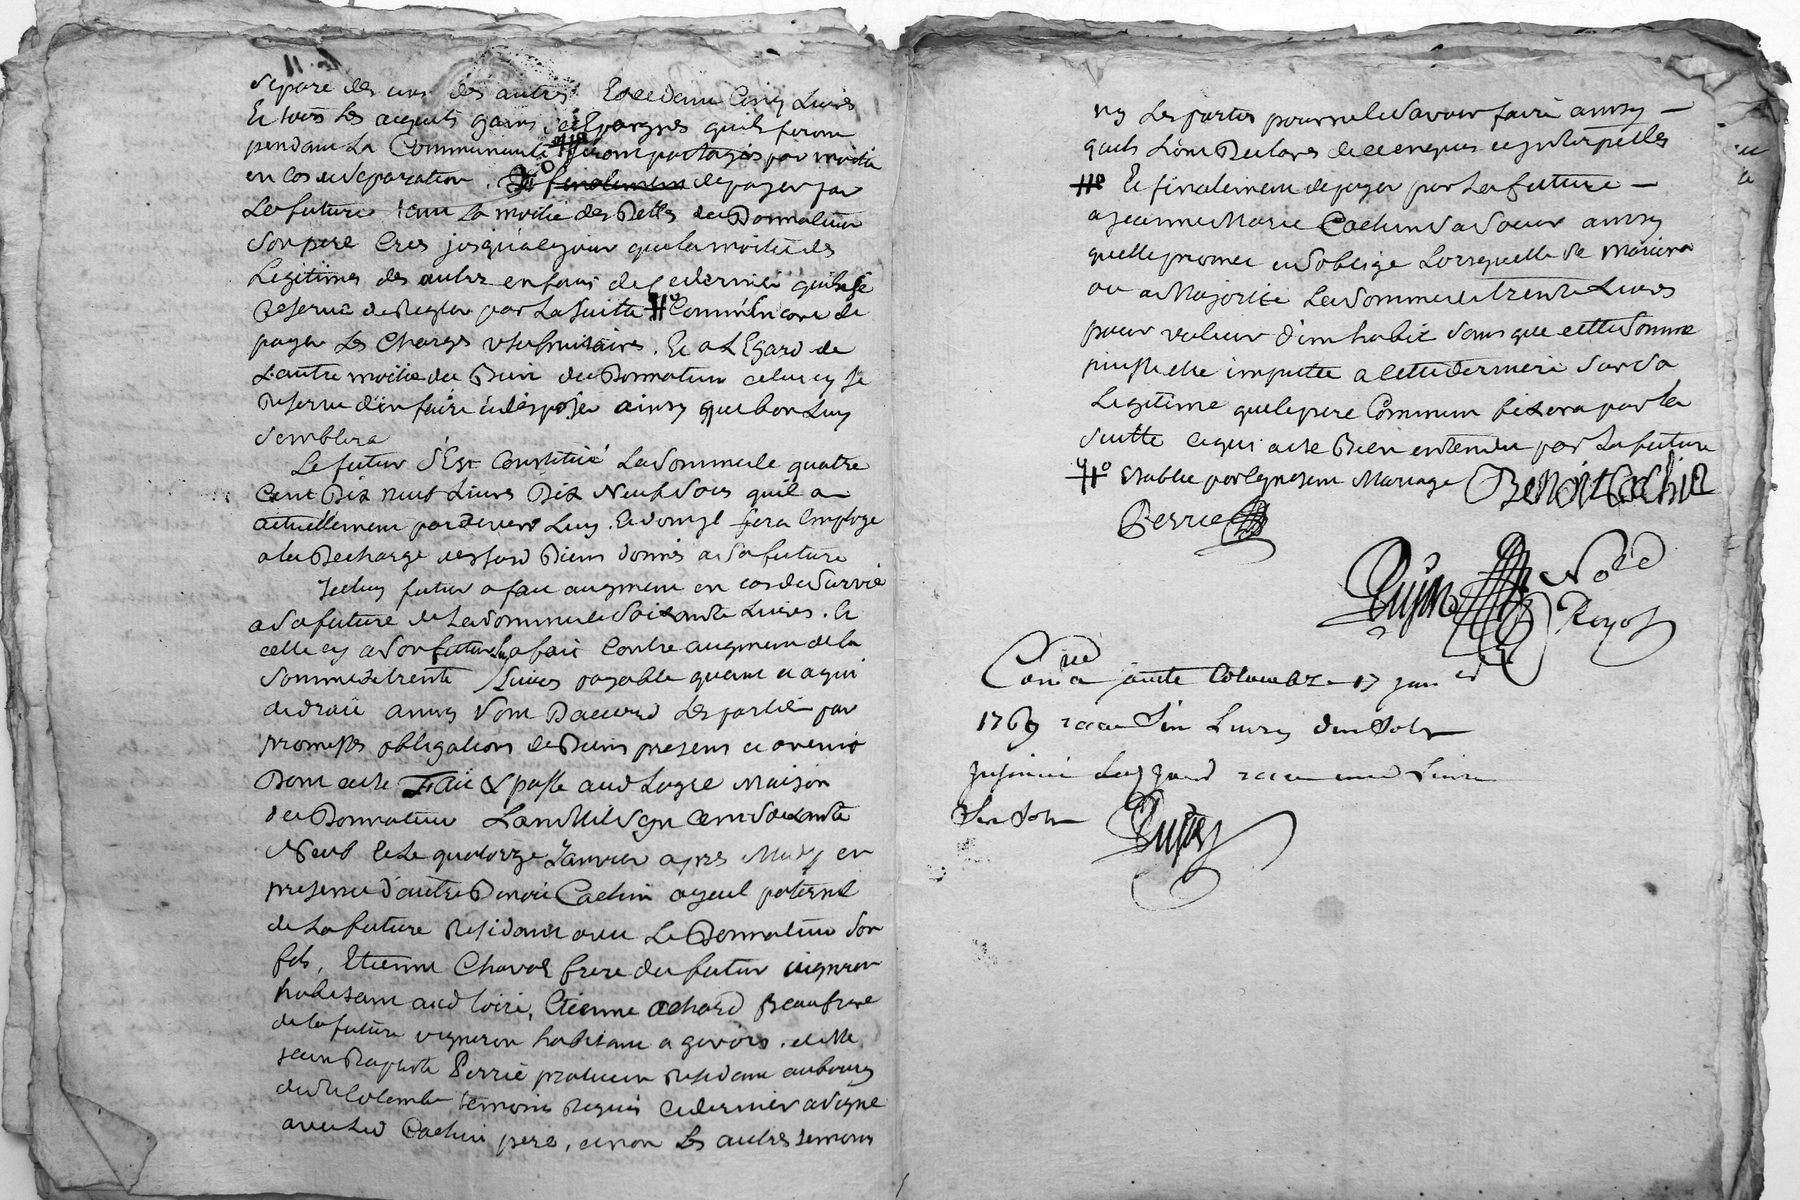 separé les uns des autres Excedant Cinq Livres
Et tous Les acquets gains Et Epargnes quils feront
pendant La Communauté seront partagés par moitié
en cas de separation. finalement de payer par
La future tant La moitié des Dettes du Donnateur
Son pere Crées jusqua ce jour que la moitié des
Legitimes des autres enfans de ce dernier quil se
Reserve de Regler par La Suitte Comm'encore de
payer Les Charges usufruitaires. Et a L'Egard de
L'autre moitié du Bien du Donnateur celuicy se
Reserve d'en faire et disposer ainsy que bon Luy
Semblera
Le futur s'Est Constitué La Somme de quatre
Cent Dix neuf Livres Dix Neuf Sols quil a
actuellement pardevers Luy. Et dont il fera Employe
a la Decharge desdits Biens donnés a Sa future
Icelluy futur a fait augment en cas de Survie
a Sa future de La Somme de Soixante Livres. Et
celle cy a Son futur Luy a fait Contre augment de la
Somme de trente Livres payable quand et a qui
de droit ainsy Sont Daccord Les parties par
promesses obligations de Biens presens et avenir
Dont acte Fait & passé aud Layre Maison
du Donnateur L'an Mil Sept Cent Soixante
Neuf Et Le quatorze Janvier apres Midy en
presence d'autre Benoit Cachin ayeul paternel
de La future Residant avec Le Donnateur Son
fils, Etienne Chavas frere du futur vigneron
habitant aud Loire, Etienne Achard Beaufrere
de la future vigneron habitant a givors. et Me
Jean Baptiste Perrié praticien Residant au bourg
de Ste Colombe temoins Requis Ce dernier a Signé
avec Led Cachin pere, et non Les autres temoins
ny Les parties pour ne le Savoir faire ainsy
quils L'ont Declaré de ce enquis et interpellés
Et finalement de payer par La future
a Jeanne Marie Cachin Sa Soeur ainsy
quelle promet et S'oblige Lorsquelle Se Mariera
ou a Majorité La Somme de trente Livres
pour valeur d'un habit Sans que cette Somme
puisse etre imputée a Cette derniere Sur Sa
Legitime que le pere Commun fixera par la
Suitte Ce qui a eté Bien entendu par La future
Etablie par Le present Mariage Benoit Cachin
Perrie
Dujast Nore
Royal
Con.lé a Sainte Colombe 17 janer
1769 recu Six Livres Dix Sols
insinué Led jour recu une Livre
Six Sols
Dujast